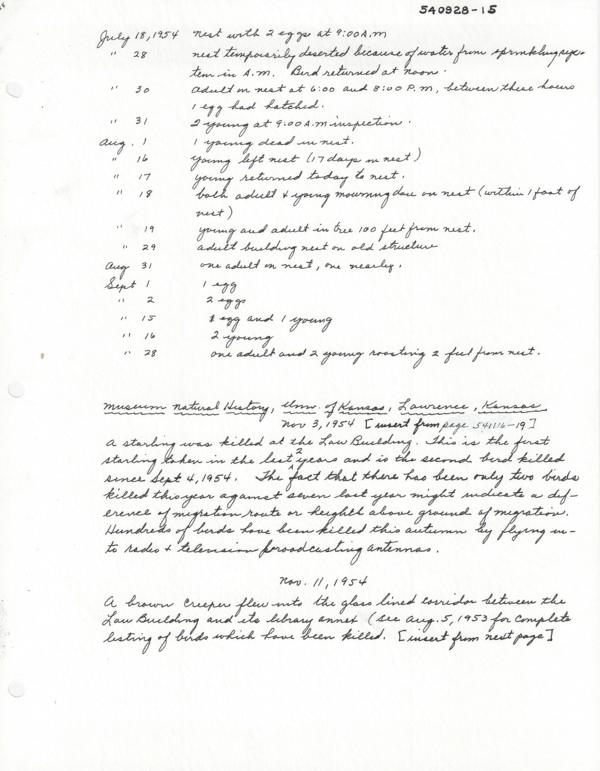 540928-15
July 18, 1954 nest with 2 eggs at 9:00 A.M
" 28 nest temporarily deserted because of water from sprinkling sys-
tem in A.M. Bird returned at noon.
" 30 adult on nest at 6:00 and 8:00 P.M, between these hours
1 egg had hatched.
" 31 2 young at 9:00 A.M inspection.
Aug. 1 1 young dead in nest.
" 16 young left nest (17 days in nest)
" 17 young returned today to nest.
" 18 both adult & young mourning dove on nest (within 1 foot of
nest)
" 19 young and adult in tree 100 feet from nest.
" 29 adult building nest on old structure
Aug 31 one adult on nest, one nearby.
Sept 1 1 egg
" 2 2 eggs
" 15 1 egg and 1 young
" 16 2 young
" 28 one adult and 2 young roosting 2 feet from nest.
Museum Natural History, Univ. of Kansas, Lawrence, Kansas
Nov 3, 1954 [insert from page 541116-19]
A starling was killed at the Law Building. This is the first
starling taken in the last 2 years and is the second bird killed
since Sept 4, 1954. The fact that there has been only two birds
killed this year against seven last year might indicate a dif-
erence of migration route or heighth above ground of migration.
Hundreds of birds have been killed this autumn by flying in-
to radio & television broadcasting antennas.
Nov. 11, 1954
A brown creeper flew into the glass lined corridor between the
Law Building and its library annex (see Aug. 5, 1953 for complete
listing of birds which have been killed. [insert from next page]